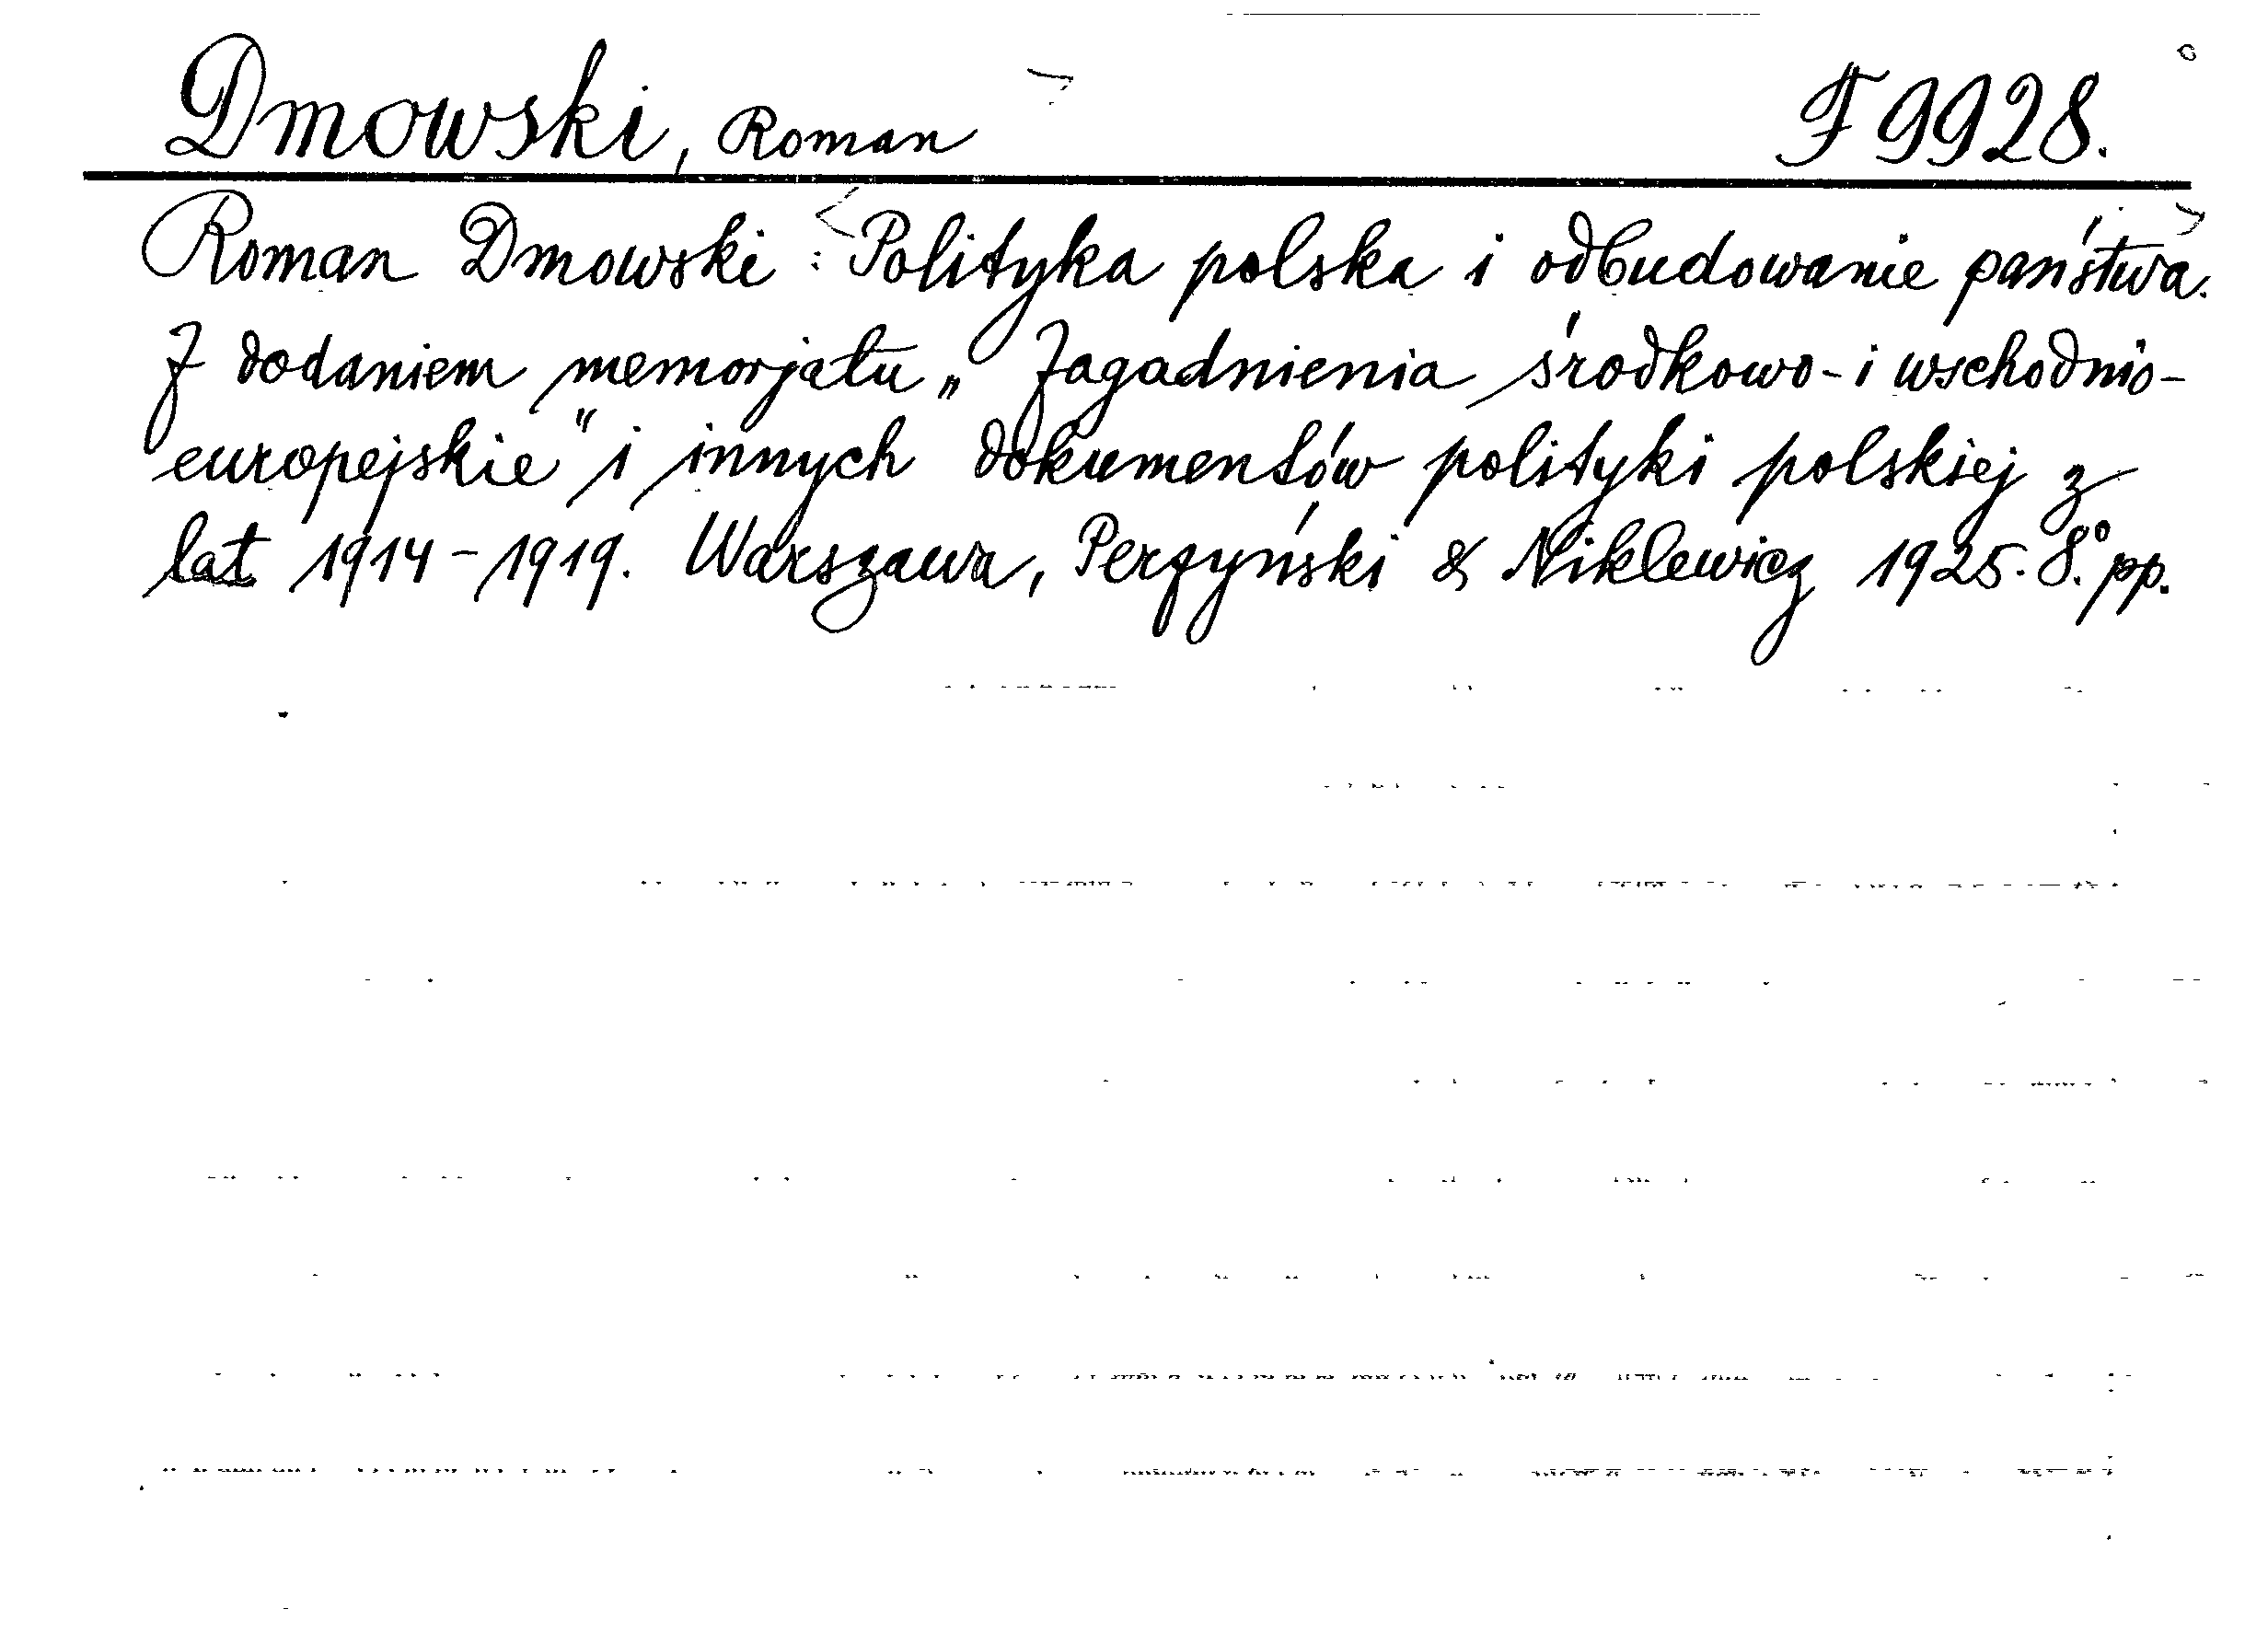 Dmowski, Roman F 9928.
Roman Dmowski : <Polityka polska i odbudowanie państwa.>
Z dodaniem memorjału „Zagadnienia środkowo- i wschodnio-
europejskie“ i innych dokumentów polityki polskiej z
lat 1914-1919. Warszawa, Perzyński & Niklewicz 1925. 8.° pp.